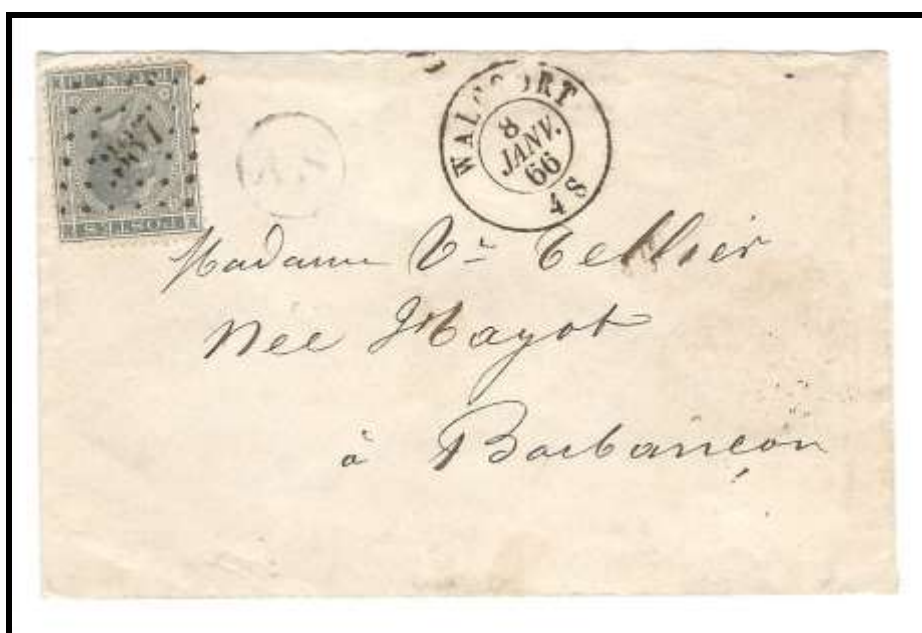 387
WALCOURT
8
JANV.
66
4 S
POSTES
Madame Vᵉ Tellier
née Hayot
à Barbançon